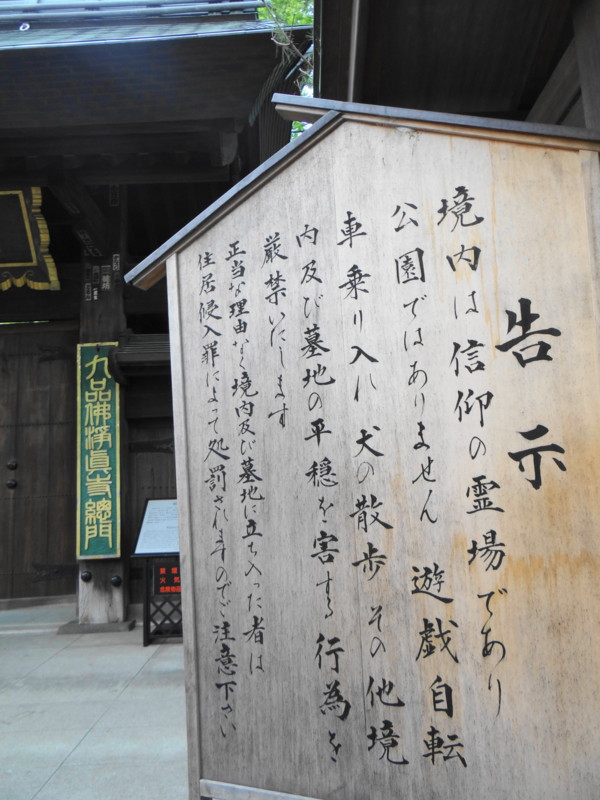 告示
境内は信仰の霊場であり
公園ではありません 遊戯自転
車乗り入れ 犬の散歩 その他境
内及び墓地の平穏を害する行為を
厳禁いたします
正当な理由なく境内及び墓地に立ち入った者は
住居侵入罪によって処罰されますのでご注意下さい
九品佛淨眞寺總門